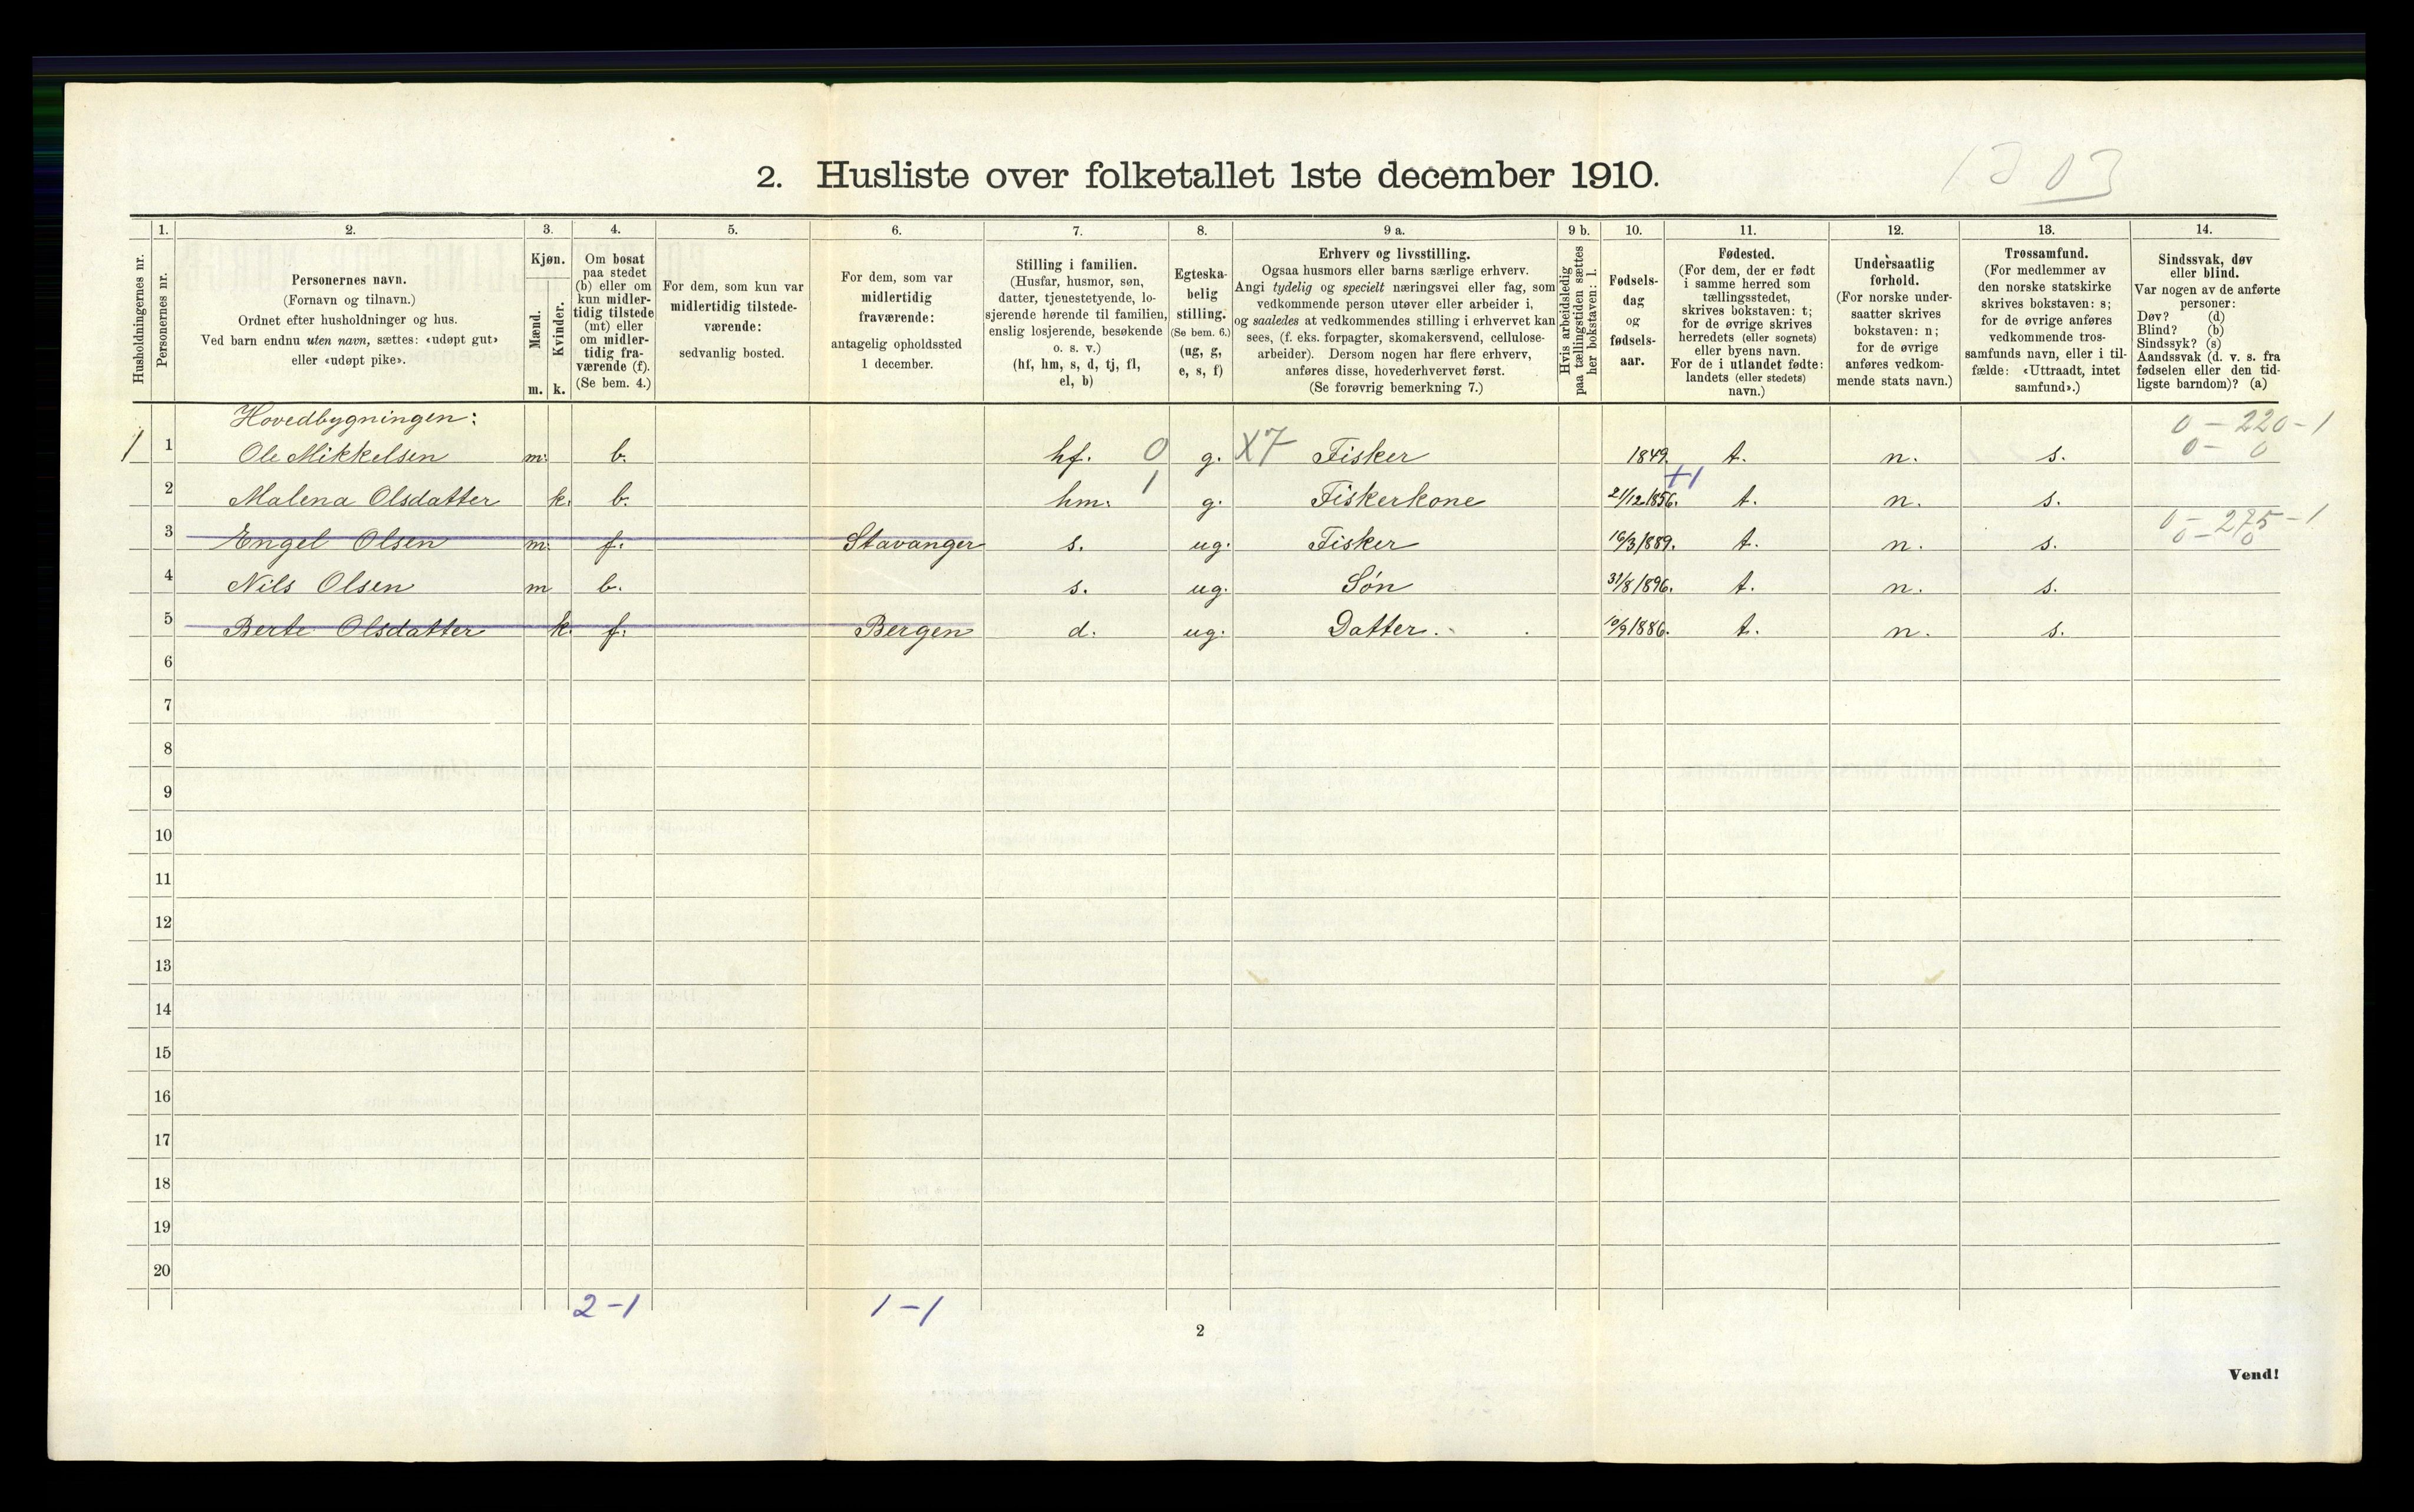 1303
2. Husliste over folketallet 1ste december 1910.
Husholdningernes nr.
1.
Personernes nr.
2.
Personernes navn.
(Fornavn og tilnavn.)
Ordnet efter husholdninger og hus.
Ved barn endnu uten navn, sættes: «udøpt gut»
eller «udøpt pike».
3.
Kjøn.
Mænd.
m.
Kvinder.
k.
4.
Om bosat
paa stedet
(b) eller om
kun midler-
tidig tilstede
(mt) eller
om midler-
tidig fra-
værende (f).
(Se bem. 4.)
5.
For dem, som kun var
midlertidig tilstede-
værende:
sedvanlig bosted.
6.
For dem, som var
midlertidig
fraværende:
antagelig opholdssted
1 december.
7.
Stilling i familien.
(Husfar, husmor, søn,
datter, tjenestetyende, lo-
sjerende hørende til familien,
enslig losjerende, besøkende
o. s. v.)
(hf, hm, s, d, tj, fl,
el, b)
8.
Egteska-
belig
stilling.
(Se bem. 6.)
(ug, g,
e, s, f)
9 a.
Erhverv og livsstilling.
Ogsaa husmors eller barns særlige erhverv.
Angi tydelig og specielt næringsvei eller fag, som
vedkommende person utøver eller arbeider i,
og saaledes at vedkommendes stilling i erhvervet kan
sees, (f. eks. forpagter, skomakersvend, cellulose-
arbeider). Dersom nogen har flere erhverv,
anføres disse, hovederhvervet først.
(Se forøvrig bemerkning 7.)
9 b.
Hvis arbeidsledig
paa tællingstiden sættes
her bokstaven: l.
10.
Fødsels-
dag
og
fødsels-
aar.
11.
Fødested.
(For dem, der er født
i samme herred som
tællingsstedet,
skrives bokstaven: t;
for de øvrige skrives
herredets (eller sognets)
eller byens navn.
For de i utlandet fødte:
landets (eller stedets)
navn.)
12.
Undersaatlig
forhold.
(For norske under-
saatter skrives
bokstaven: n;
for de øvrige
anføres vedkom-
mende stats navn.)
13.
Trossamfund.
(For medlemmer av
den norske statskirke
skrives bokstaven: s;
for de øvrige anføres
vedkommende tros-
samfunds navn, eller i til-
fælde: «Uttraadt, intet
samfund».)
14.
Sindssvak, døv
eller blind.
Var nogen av de anførte
personer:
Døv? (d)
Blind? (b)
Sindssyk? (s)
Aandssvak (d. v. s. fra
fødselen eller den tid-
ligste barndom)? (a)
Hovedbygningen:
0 - 220 - 1
1 1 Ole Mikkelsen m. b. hf. 0 g. X7 Fisker 1849. t. n. s. 0 - 0
2 Malena Olsdatter k. b. hm. 1 g. Fiskerkone 21/12 1856. +1 t. n. s.
0 - 275 - 1
3 Engel Olsen m. f. Stavanger s. ug. Fisker 16/3 1889. t. n. s. 0 - 0
4 Nils Olsen m b. s. ug. Søn 31/8 1896. t. n. s.
5 Berte Olsdatter k. f. Bergen d. ug. Datter. 10/9 1886. t. n. s.
6
7
8
9
10
11
12
13
14
15
16
17
18
19
20
2-1 1-1
2
Vend!